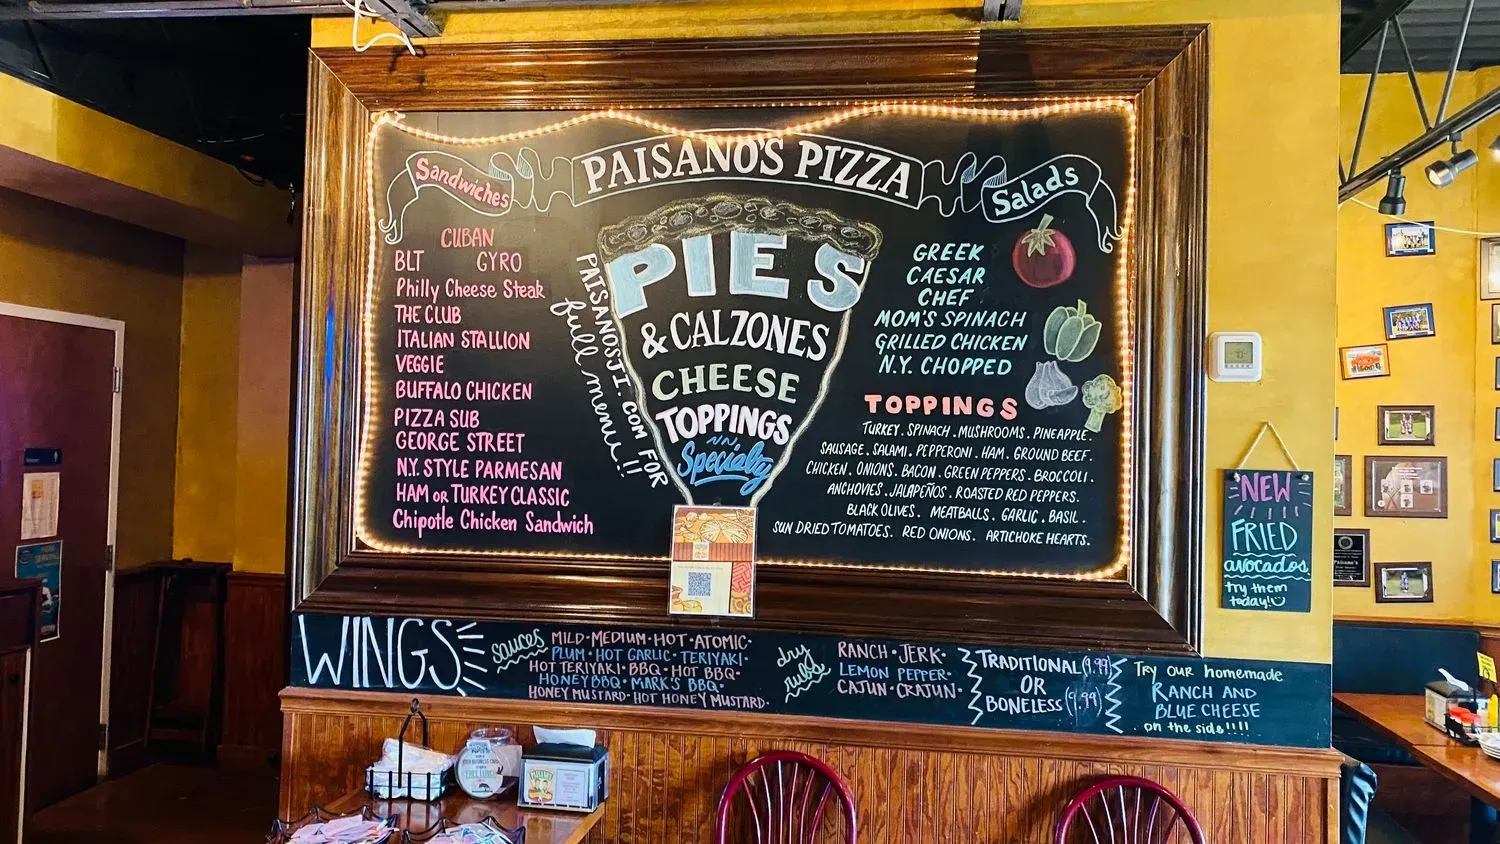 PAISANO'S PIZZA
Sandwiches
CUBAN
BLT GYRO
Philly Cheese Steak
THE CLUB
ITALIAN STALLION
VEGGIE
BUFFALO CHICKEN
PIZZA SUB
GEORGE STREET
N.Y. STYLE PARMESAN
HAM OR TURKEY CLASSIC
Chipotle Chicken Sandwich
PIES
& CALZONES
CHEESE
TOPPINGS
Specialty
PAISANOSJI.COM FOR
full menu!!
Salads
GREEK
CAESAR
CHEF
MOM'S SPINACH
GRILLED CHICKEN
N.Y. CHOPPED
TOPPINGS
TURKEY. SPINACH. MUSHROOMS. PINEAPPLE.
SAUSAGE. SALAMI. PEPPERONI. HAM. GROUND BEEF.
CHICKEN. ONIONS. BACON. GREEN PEPPERS. BROCCOLI.
ANCHOVIES. JALAPEÑOS. ROASTED RED PEPPERS.
BLACK OLIVES. MEATBALLS. GARLIC. BASIL.
SUN DRIED TOMATOES. RED ONIONS. ARTICHOKE HEARTS.
NEW
FRIED
avocados
try them
today!
WINGS
sauces
MILD·MEDIUM·HOT·ATOMIC·
PLUM·HOT GARLIC·TERIYAKI·
HOT TERIYAKI·BBQ·HOT BBQ·
HONEY BBQ·MARK'S BBQ·
HONEY MUSTARD·HOT HONEY MUSTARD·
dry
rubs
RANCH·JERK·
LEMON PEPPER·
CAJUN·CRAJUN·
TRADITIONAL (9.99)
OR
BONELESS (9.99)
TRY OUR homemade
RANCH AND
BLUE CHEESE
on the side!!!!